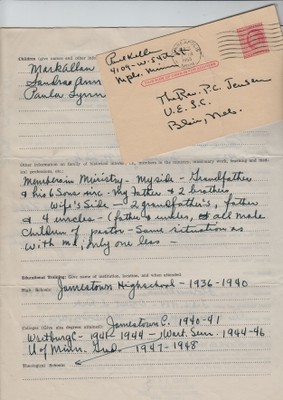 Children (give names and other info
Mark Allan
Sandra Ann
Paula Lynn
Paul Kell
4109-W. 54th St.
Mpls. Minn
The Rev. P.C. Jensen
U.E.L.C.
Blair, Nebr.
Other information on family of historical nature, i.e., ancestors in the ministry, missionary work, teaching and
Members in Ministry - My side - Grandfather
& his 6 Sons inc. my Father & 2 brothers
Wife's Side - 2 grandfathers, father
& 4 uncles - (father & uncles, all male
children of pastor - Same situation as
with me, only one less -
Educational Training: Give name of institution, location, and when attended.
High School: Jamestown Highschool - 1936-1940
College: (Give also degrees attained) Jamestown C. 1940-41
Wartburg C - 1941-1944 - Wart. Sem. 1944-46
U of Minn. Grad. 1947-1948
Theological School: